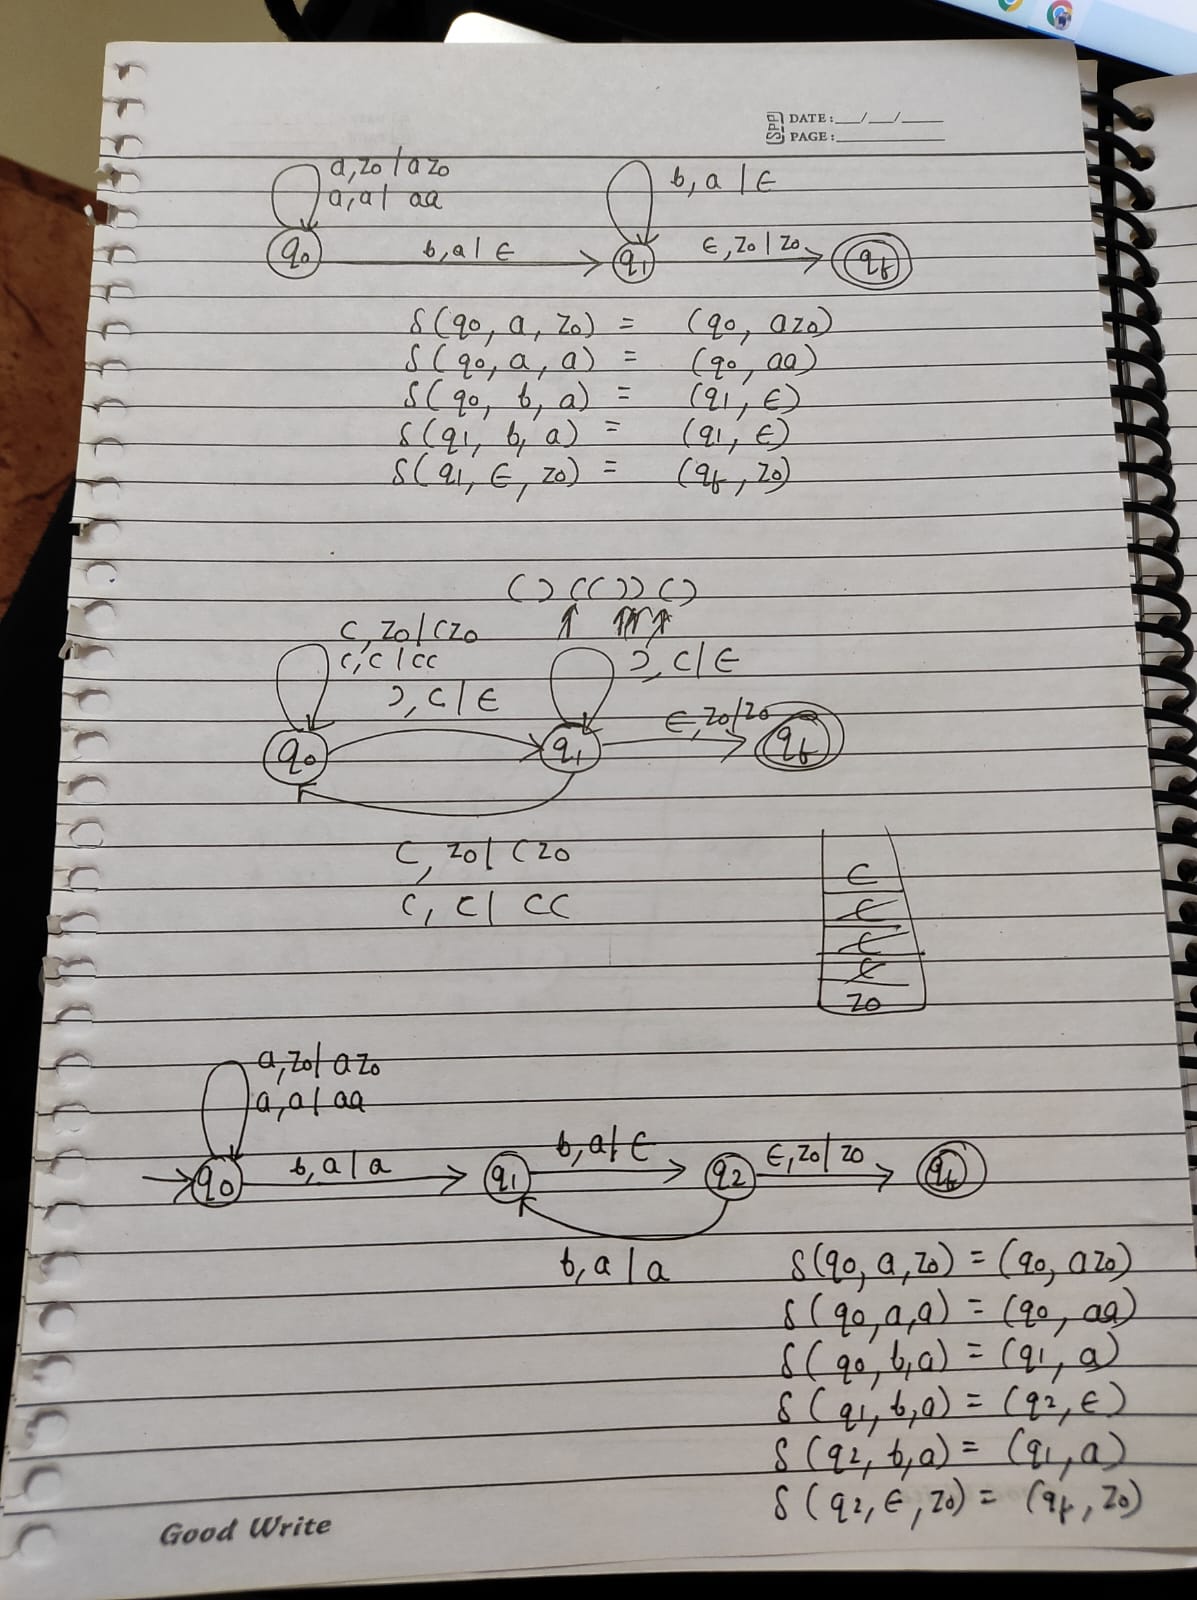 SPP DATE: __/__/____
PAGE: ________
a, z0 / a z0
a, a / aa
b, a / ϵ
q0
b, a / ϵ
q1
ϵ, z0 / z0
qf
δ(q0, a, z0) = (q0, az0)
δ(q0, a, a) = (q0, aa)
δ(q0, b, a) = (q1, ϵ)
δ(q1, b, a) = (q1, ϵ)
δ(q1, ϵ, z0) = (qf, z0)
( ) ( ( ) ) ( )
(, z0 / (z0
(, ( / ((
), ( / ϵ
), ( / ϵ
ϵ, z0 / z0
q0
q1
qf
(, z0 / (z0
(, ( / ((
(
(
(
(
z0
a, z0 / a z0
a, a / aa
q0
b, a / a
q1
b, a / ϵ
q2
ϵ, z0 / z0
qf
b, a / a
δ(q0, a, z0) = (q0, az0)
δ(q0, a, a) = (q0, aa)
δ(q0, b, a) = (q1, a)
δ(q1, b, a) = (q2, ϵ)
δ(q2, b, a) = (q1, a)
δ(q2, ϵ, z0) = (qf, z0)
Good Write